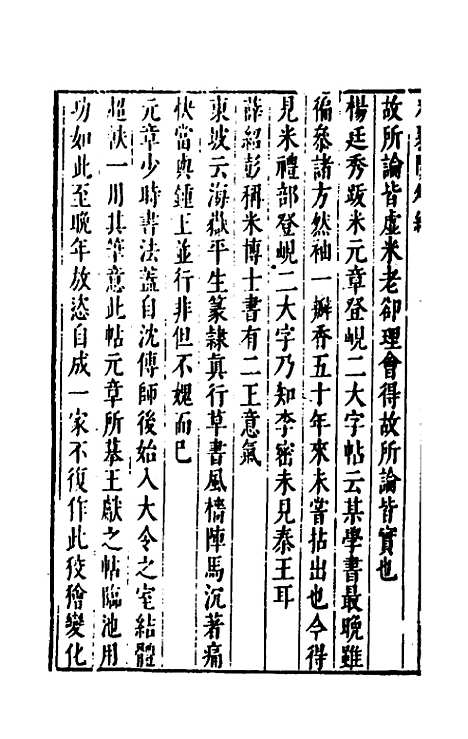 故所論皆虛米老卻理會得故所論皆實也
楊廷秀跋米元章登峴二大字帖云某學書最晚雖
徧參諸方然袖一瓣香五十年來未甞拈出也今得
見米禮部登峴二大字乃知李密未見秦王耳
薛紹彭稱米博士書有二王意氣
東坡云海嶽平生篆隷真行草書風檣陣馬沉著痛
快當與鍾王並行非但不媿而已
元章少時書法蓋自沈傳師後始入大令之室結體
超軼一用其筆意此帖元章所摹王獻之帖臨池用
功如此至晚年放恣自成一家不復作此狡獪變化